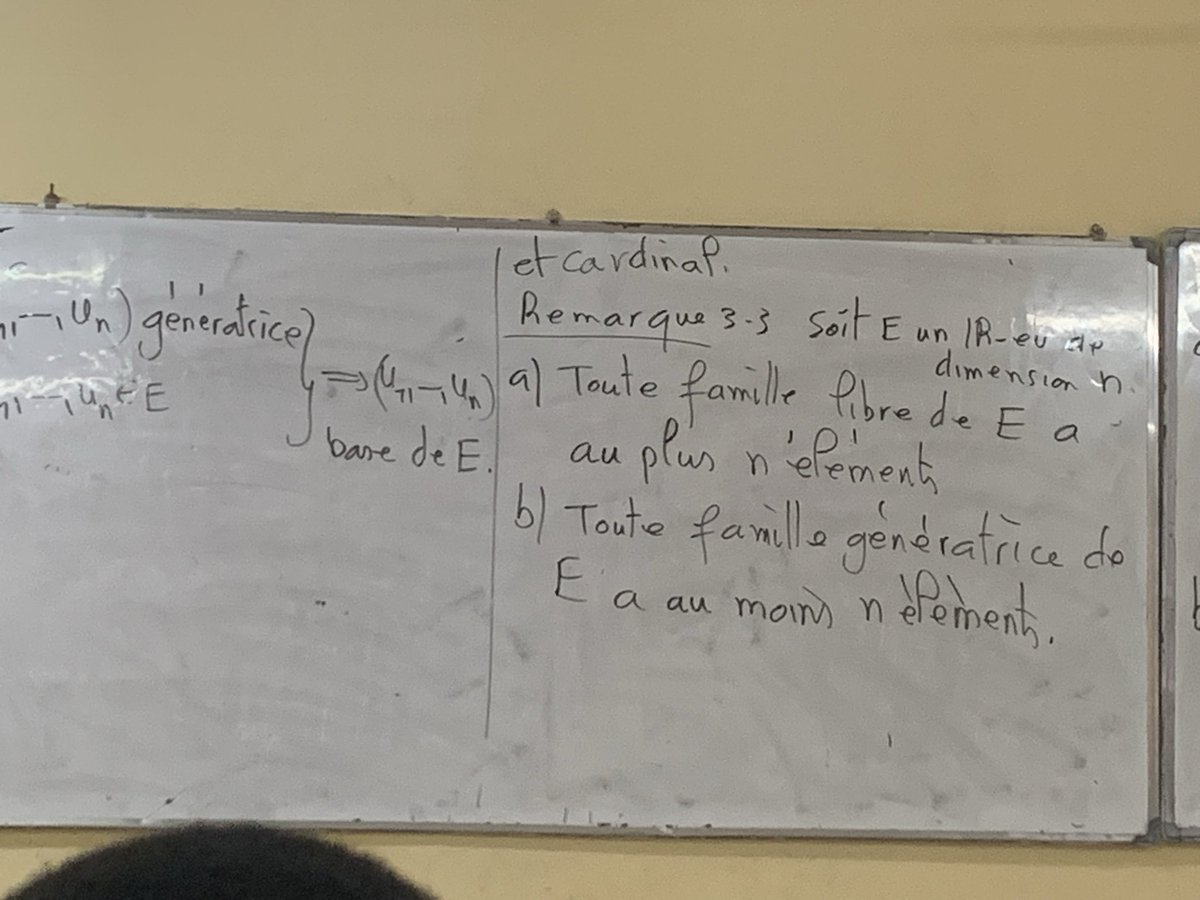 , --, Un) génératrice
, --, Un ∈ E
⇒ (U1, --, Un)
base de E.
et cardinal.
Remarque 3-3 Soit E un IR-ev de
dimension n.
a) Toute famille libre de E a
au plus n élements
b) Toute famille génératrice de
E a au moins n élèments.